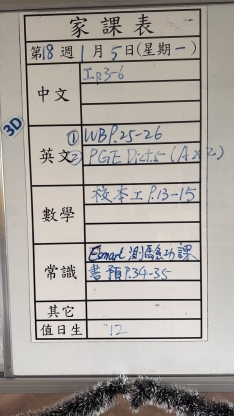 家課表
第18週 1月5日(星期一)
3D
中文 工P.3-6
英文 ① WB P.25-26
② PGE Dict.5 (A×2)
數學 校本工P.13-15
常識 Esmart 測驗功課
書預P.34-35
其它
值日生 12